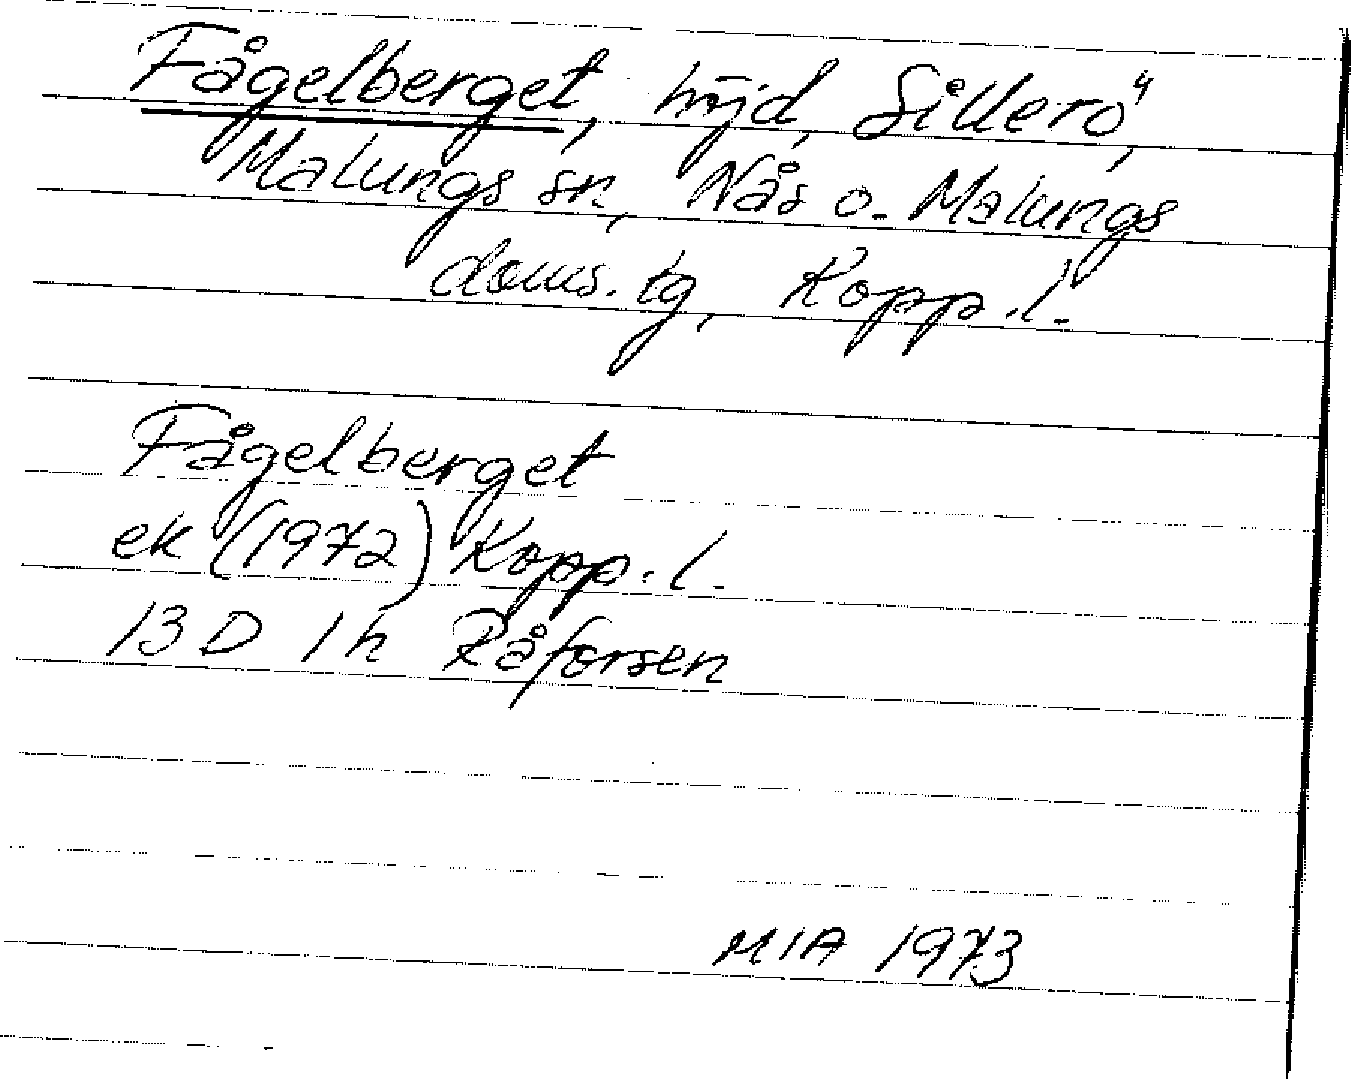 Fågelberget, höjd, Sillerö,
Malungs sn, Nås o. Malungs
doms. tg, Kopp. l.
Fågelberget
ek (1972) Kopp. l.
13 D 1 h Råforsen
MIA 1973